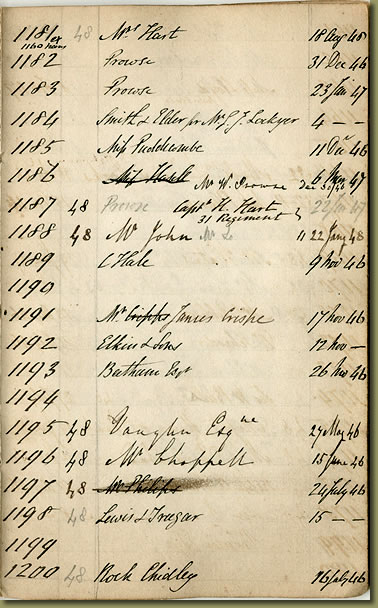 1181 48 Mrs Hart 18 Aug 48
1182 Prowse 31 Dec 46
1183 Prowse 23 Jan 47
1184 Smith & Elder pr Mr G. J. Lockyer 4 — —
1185 Miss Puddicombe 11 Decr 46
1186 Mr W. Prowse 6 47
1187 48 Prowse Captn H. Hart 47
31 Regiment
1188 48 Mr John 11 22 Jany 48
1189 C Hale 9 Nov 46
1190
1191 Mr Cripps James Crispe 17 Nov 46
1192 Elkin & Sons 12 Nov —
1193 Batham Esqr 26 46
1194
1195 48 Vaughn Esqre 27 May 46
1196 48 Mr Chappell 15 June 46
1197 48 Mr Philips 24 July 46
1198 48 Lewis & Treagar 15 — —
1199
1200 48 Rock Chidley 16 July 46